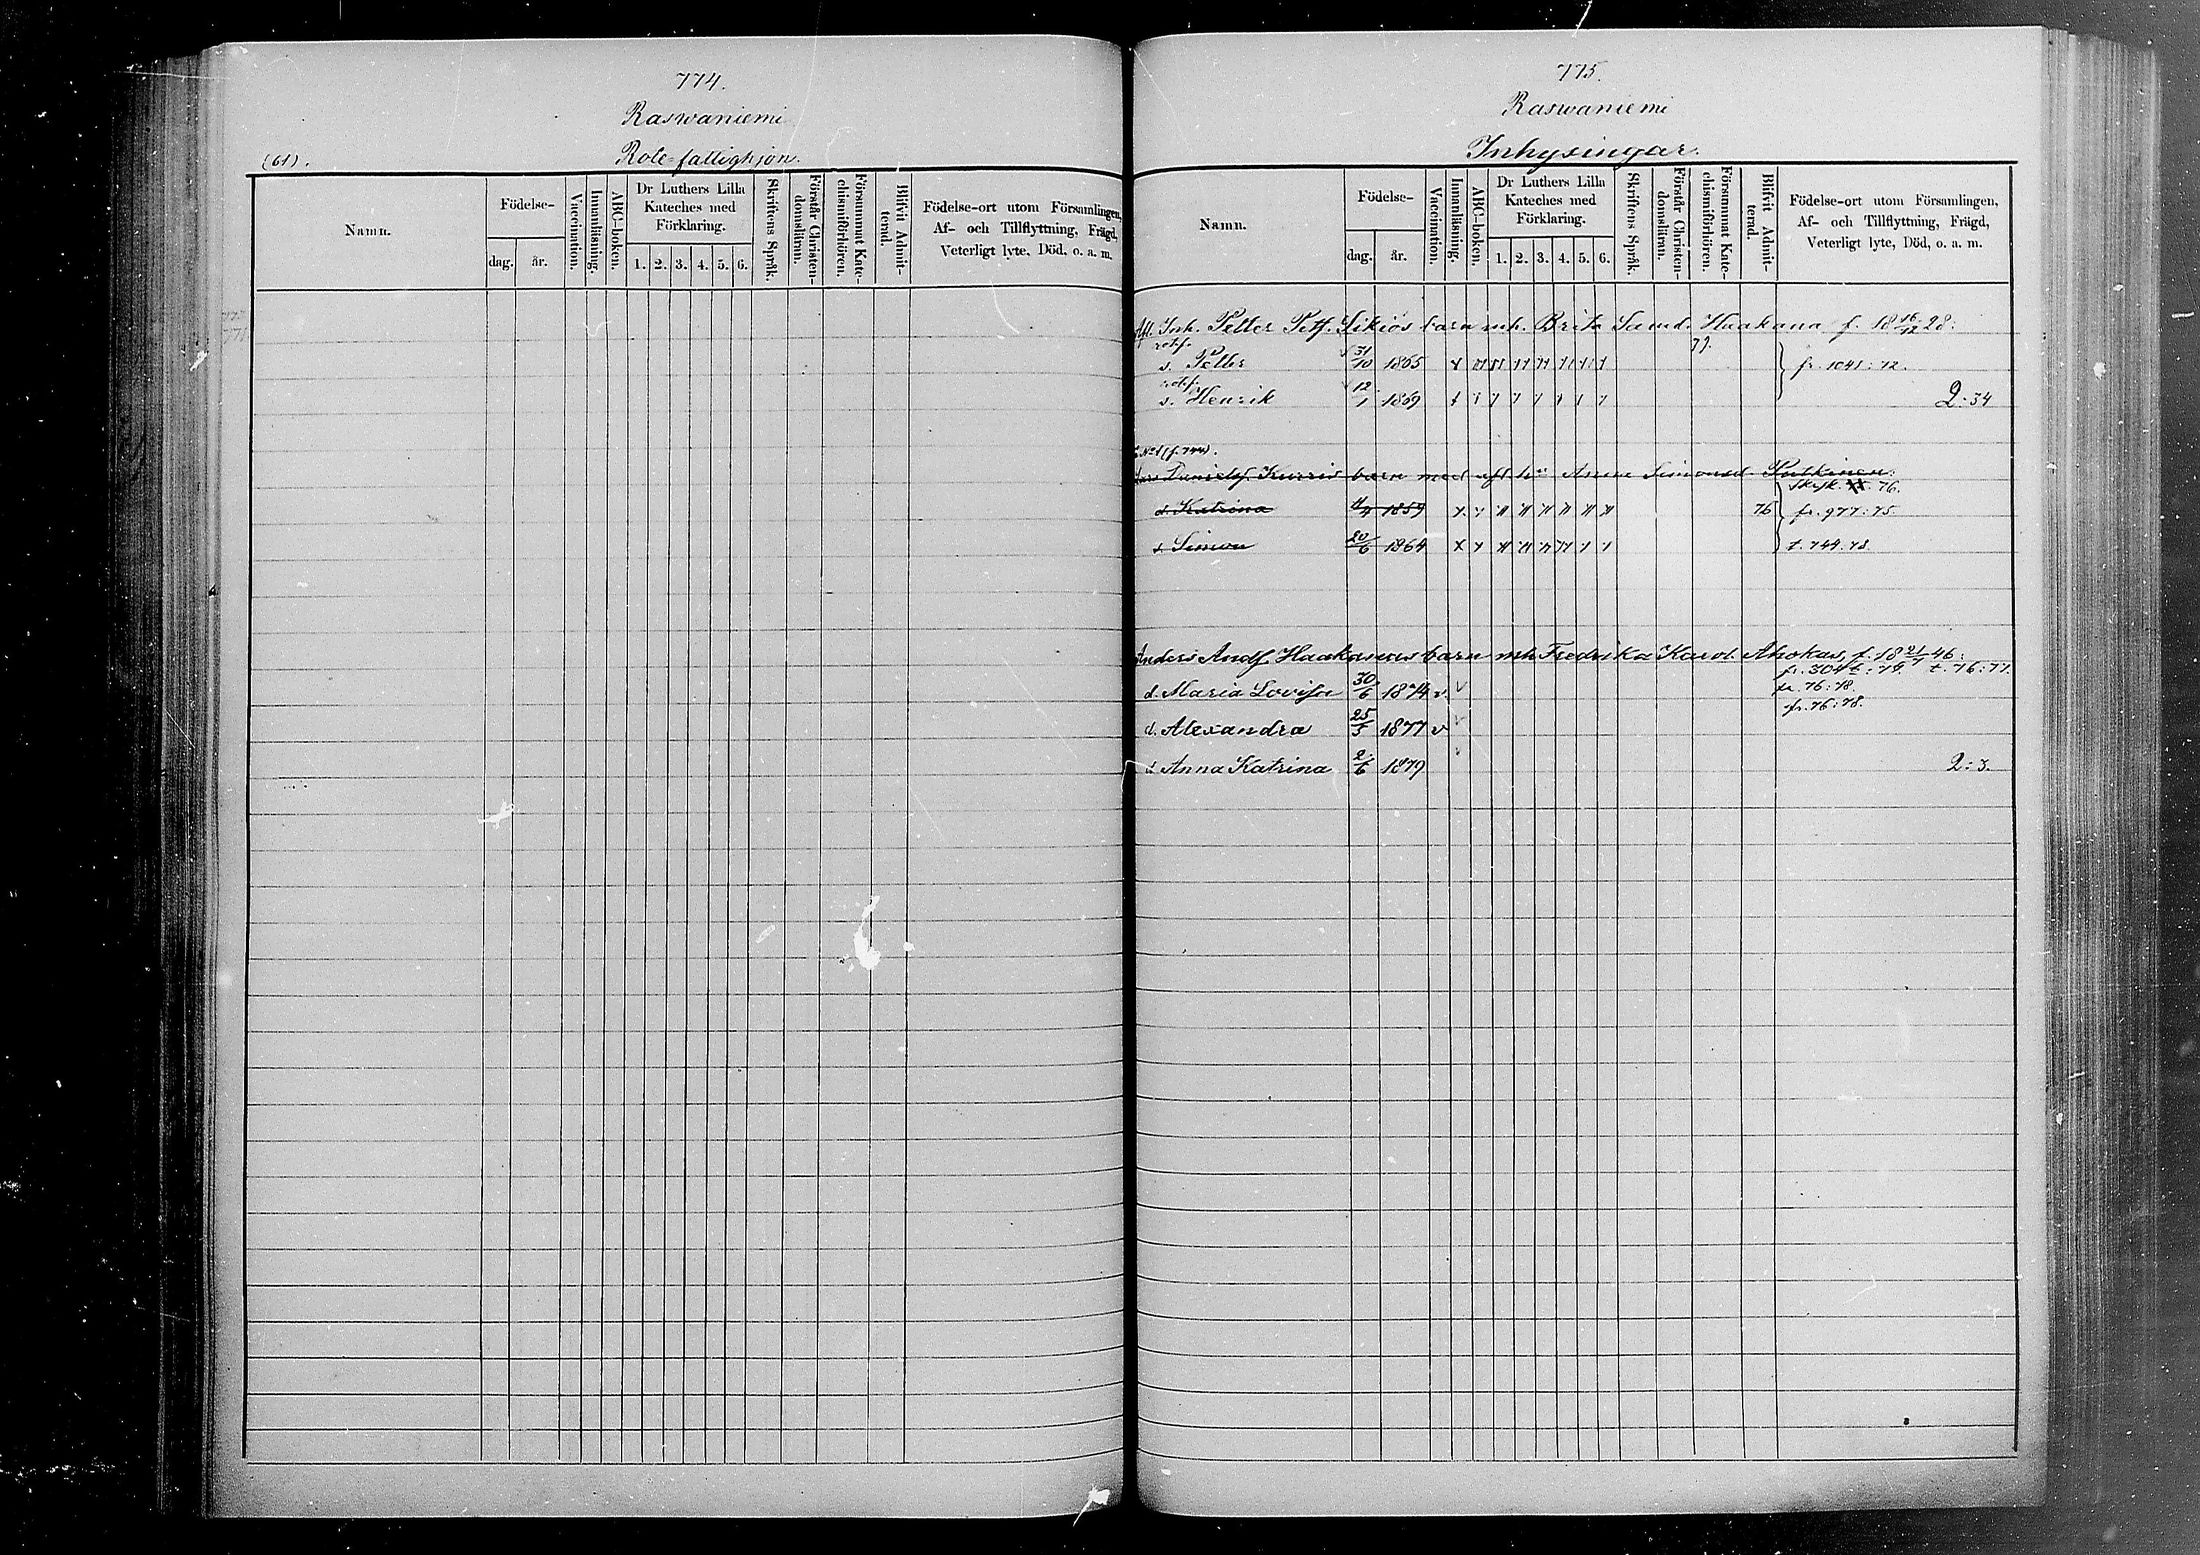 774.
Raswaniemi
(61).
Rote-fattighjon.
Namn.
Födelse-
dag.
år.
Vaccination.
Innanläsning.
ABC-boken.
Dr Luthers Lilla
Kateches med
Förklaring.
1. 2. 3. 4. 5. 6.
Skriftens Språk.
Förstår Christen-
domsläran.
Försummat Kate-
chismiförhören.
Blifvit Admit-
terad.
Födelse-ort utom Församlingen,
Af- och Tillflyttning, Frägd,
Veterligt lyte, Död, o. a. m.
775.
Raswaniemi
Inhysingar.
Namn.
Födelse-
dag.
år.
Vaccination.
Innanläsning.
ABC-boken.
Dr Luthers Lilla
Kateches med
Förklaring.
1. 2. 3. 4. 5. 6.
Skriftens Språk.
Förstår Christen-
domsläran.
Försummat Kate-
chismiförhören.
Blifvit Admit-
terad.
Födelse-ort utom Församlingen,
Af- och Tillflyttning, Frägd,
Veterligt lyte, Död, o. a. m.
Afl. Inh. Petter Petf. Sikiös barn mh. Brita Samd. Haakana f. 18 16/12 28.
s. Petter 31/10 1865 fr. 1041:72.
s. Henrik 12/1 1869 2:34
Danielsf. Kurvis barn med afl. hu Anna Simonsd. Putkinen.
d. Katrina 4/4 1859 76 fr. 977:75
s. Simon 20/6 1864 t. 744.78
Anders Andf. Haakanas barn mh Fredrika Karol. Ahokas, f. 18 21/7 46.
t. 76:77.
d. Maria Lovisa 30/6 1874 v. fr. 76:78.
fr. 76:78.
d. Alexandra 25/3 1877 v
d. Anna Katrina 2/6 1879 2:3.